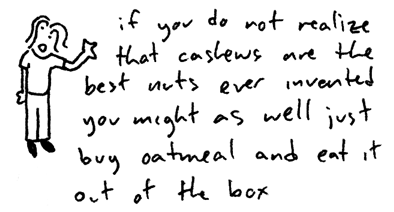 if you do not realize
that cashews are the
best nuts ever invented
you might as well just
buy oatmeal and eat it
out of the box